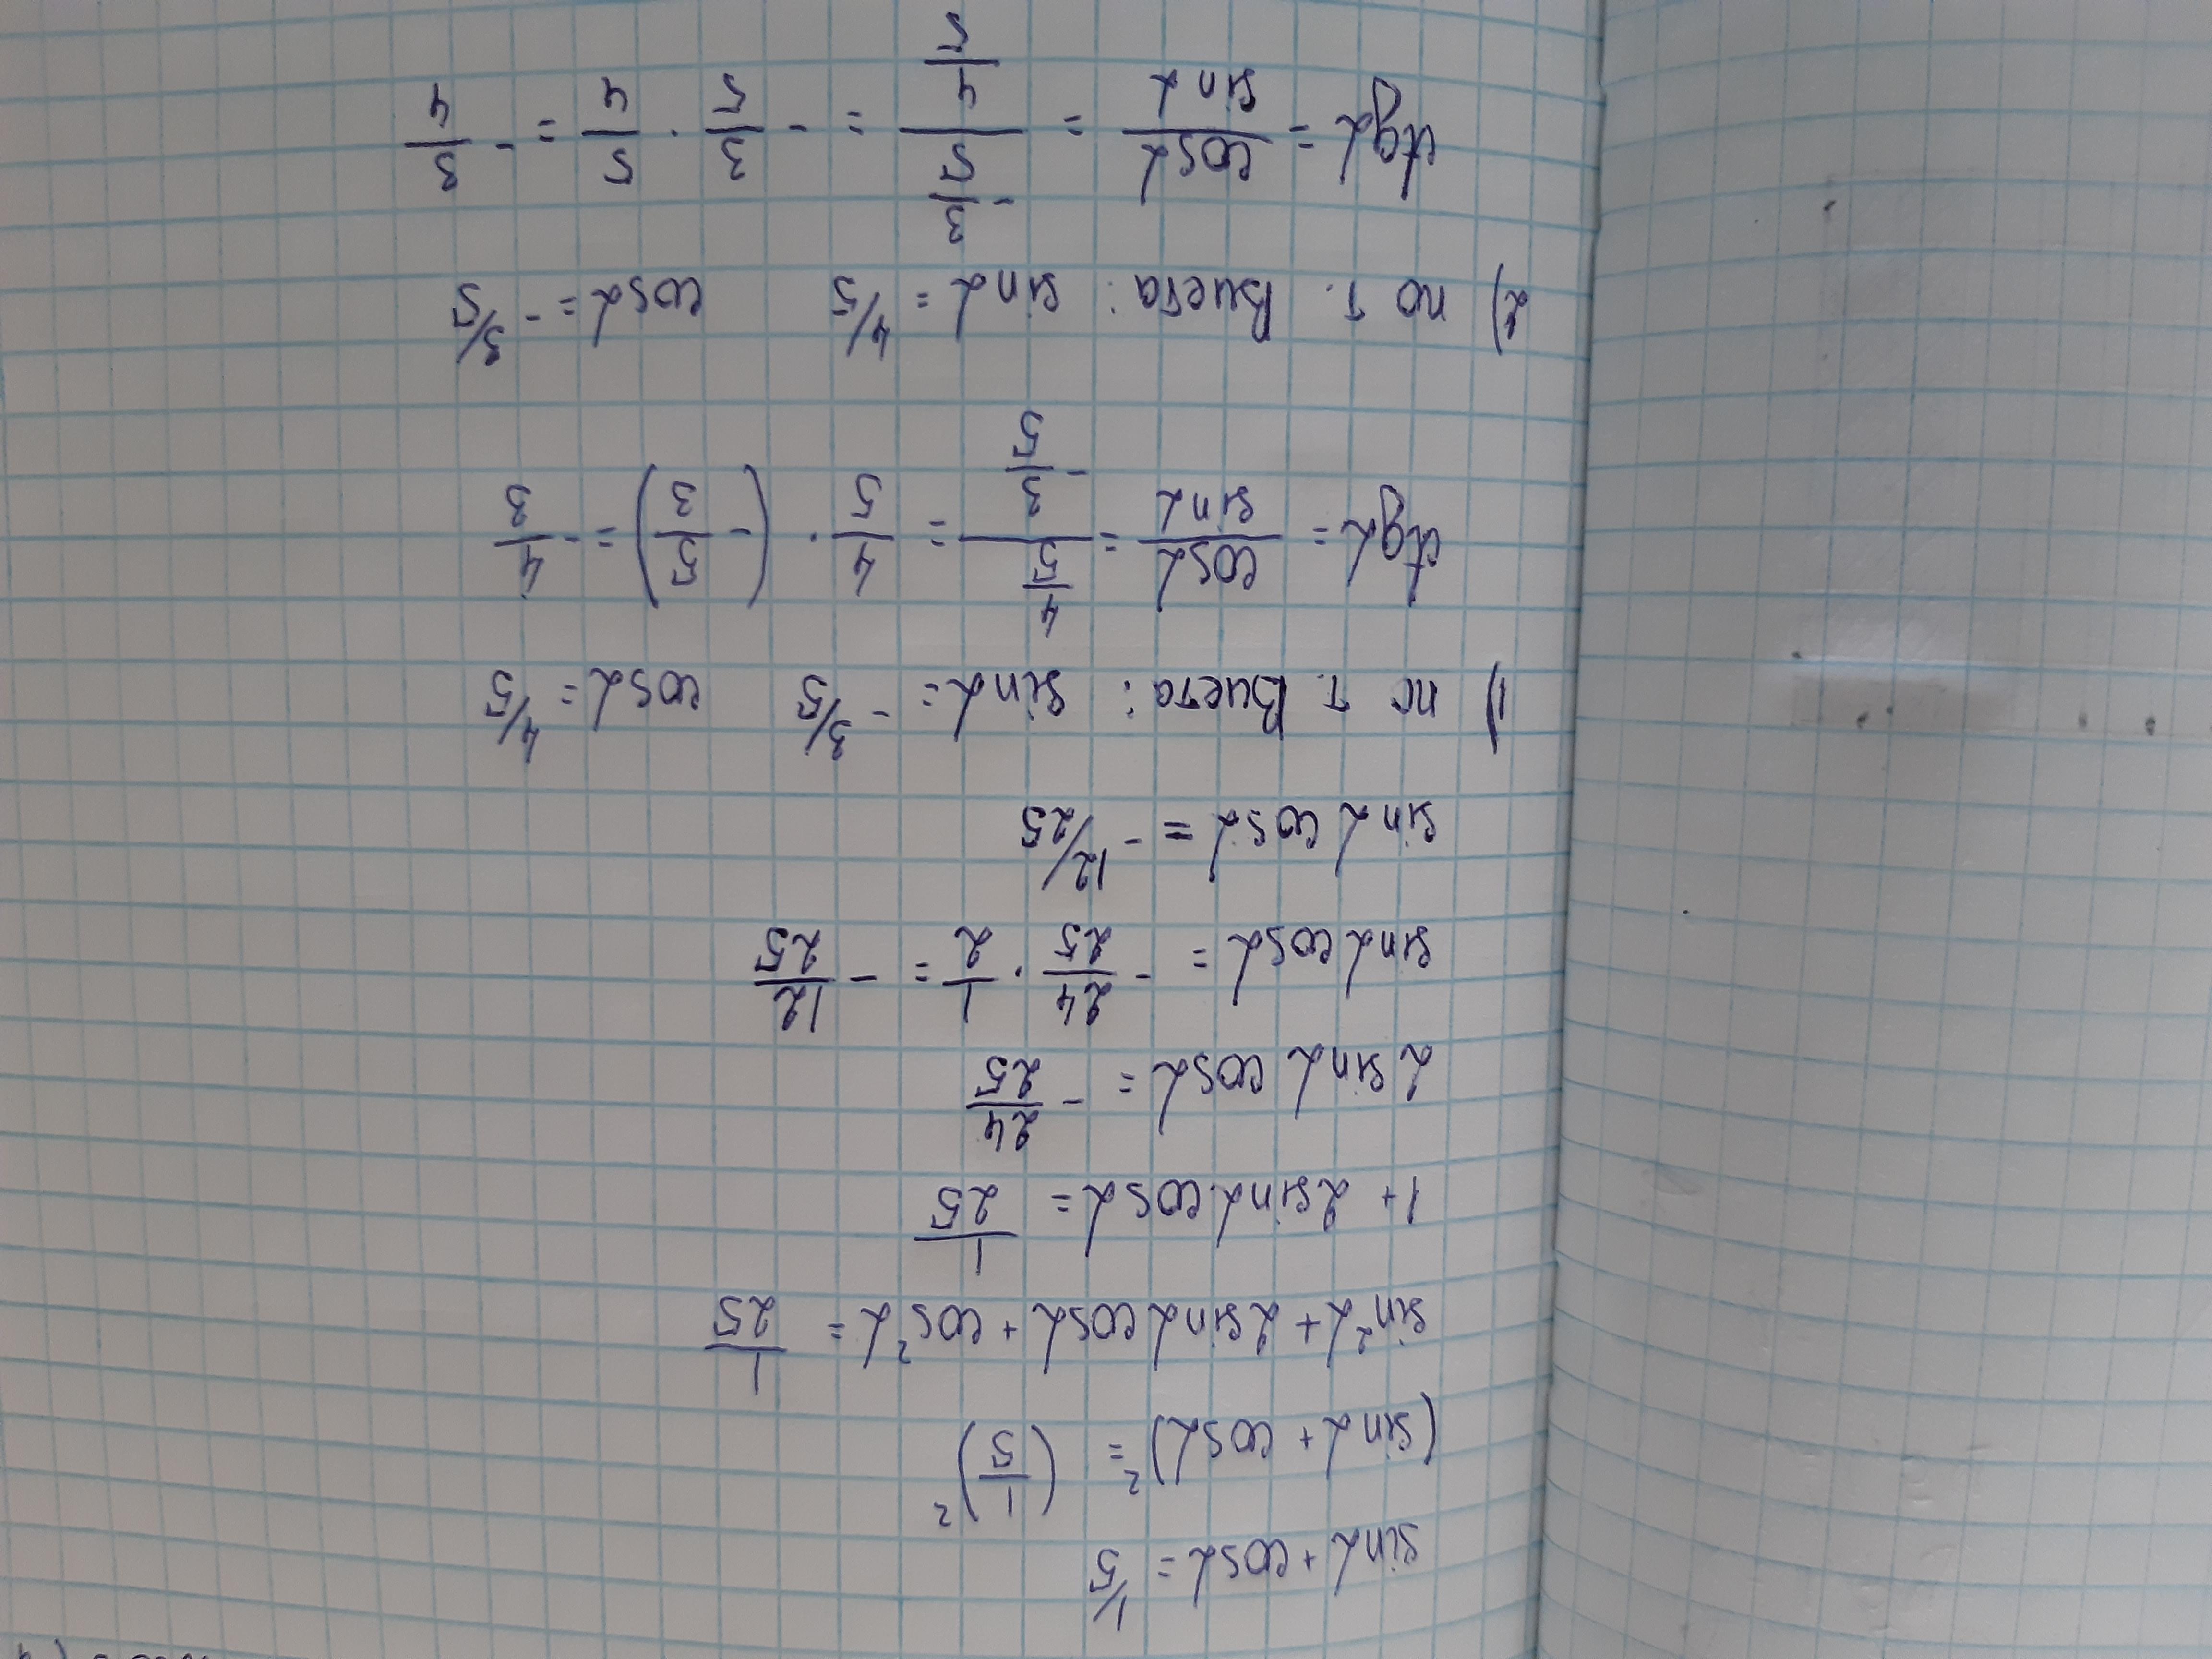 sinα + cosα = 1/5
(sinα + cosα)² = (1/5)²
sin²α + 2sinαcosα + cos²α = 1/25
1 + 2sinαcosα = 1/25
2sinαcosα = - 24/25
sinαcosα = - 24/25 · 1/2 = - 12/25
sinαcosα = - 12/25
1) по т. Виета: sinα = - 3/5 cosα = 4/5
ctgα = cosα/sinα = (4/5)/(- 3/5) = 4/5 · (- 5/3) = - 4/3
2) по т. Виета: sinα = 4/5 cosα = - 3/5
ctgα = cosα/sinα = (- 3/5)/(4/5) = - 3/5 · 5/4 = - 3/4